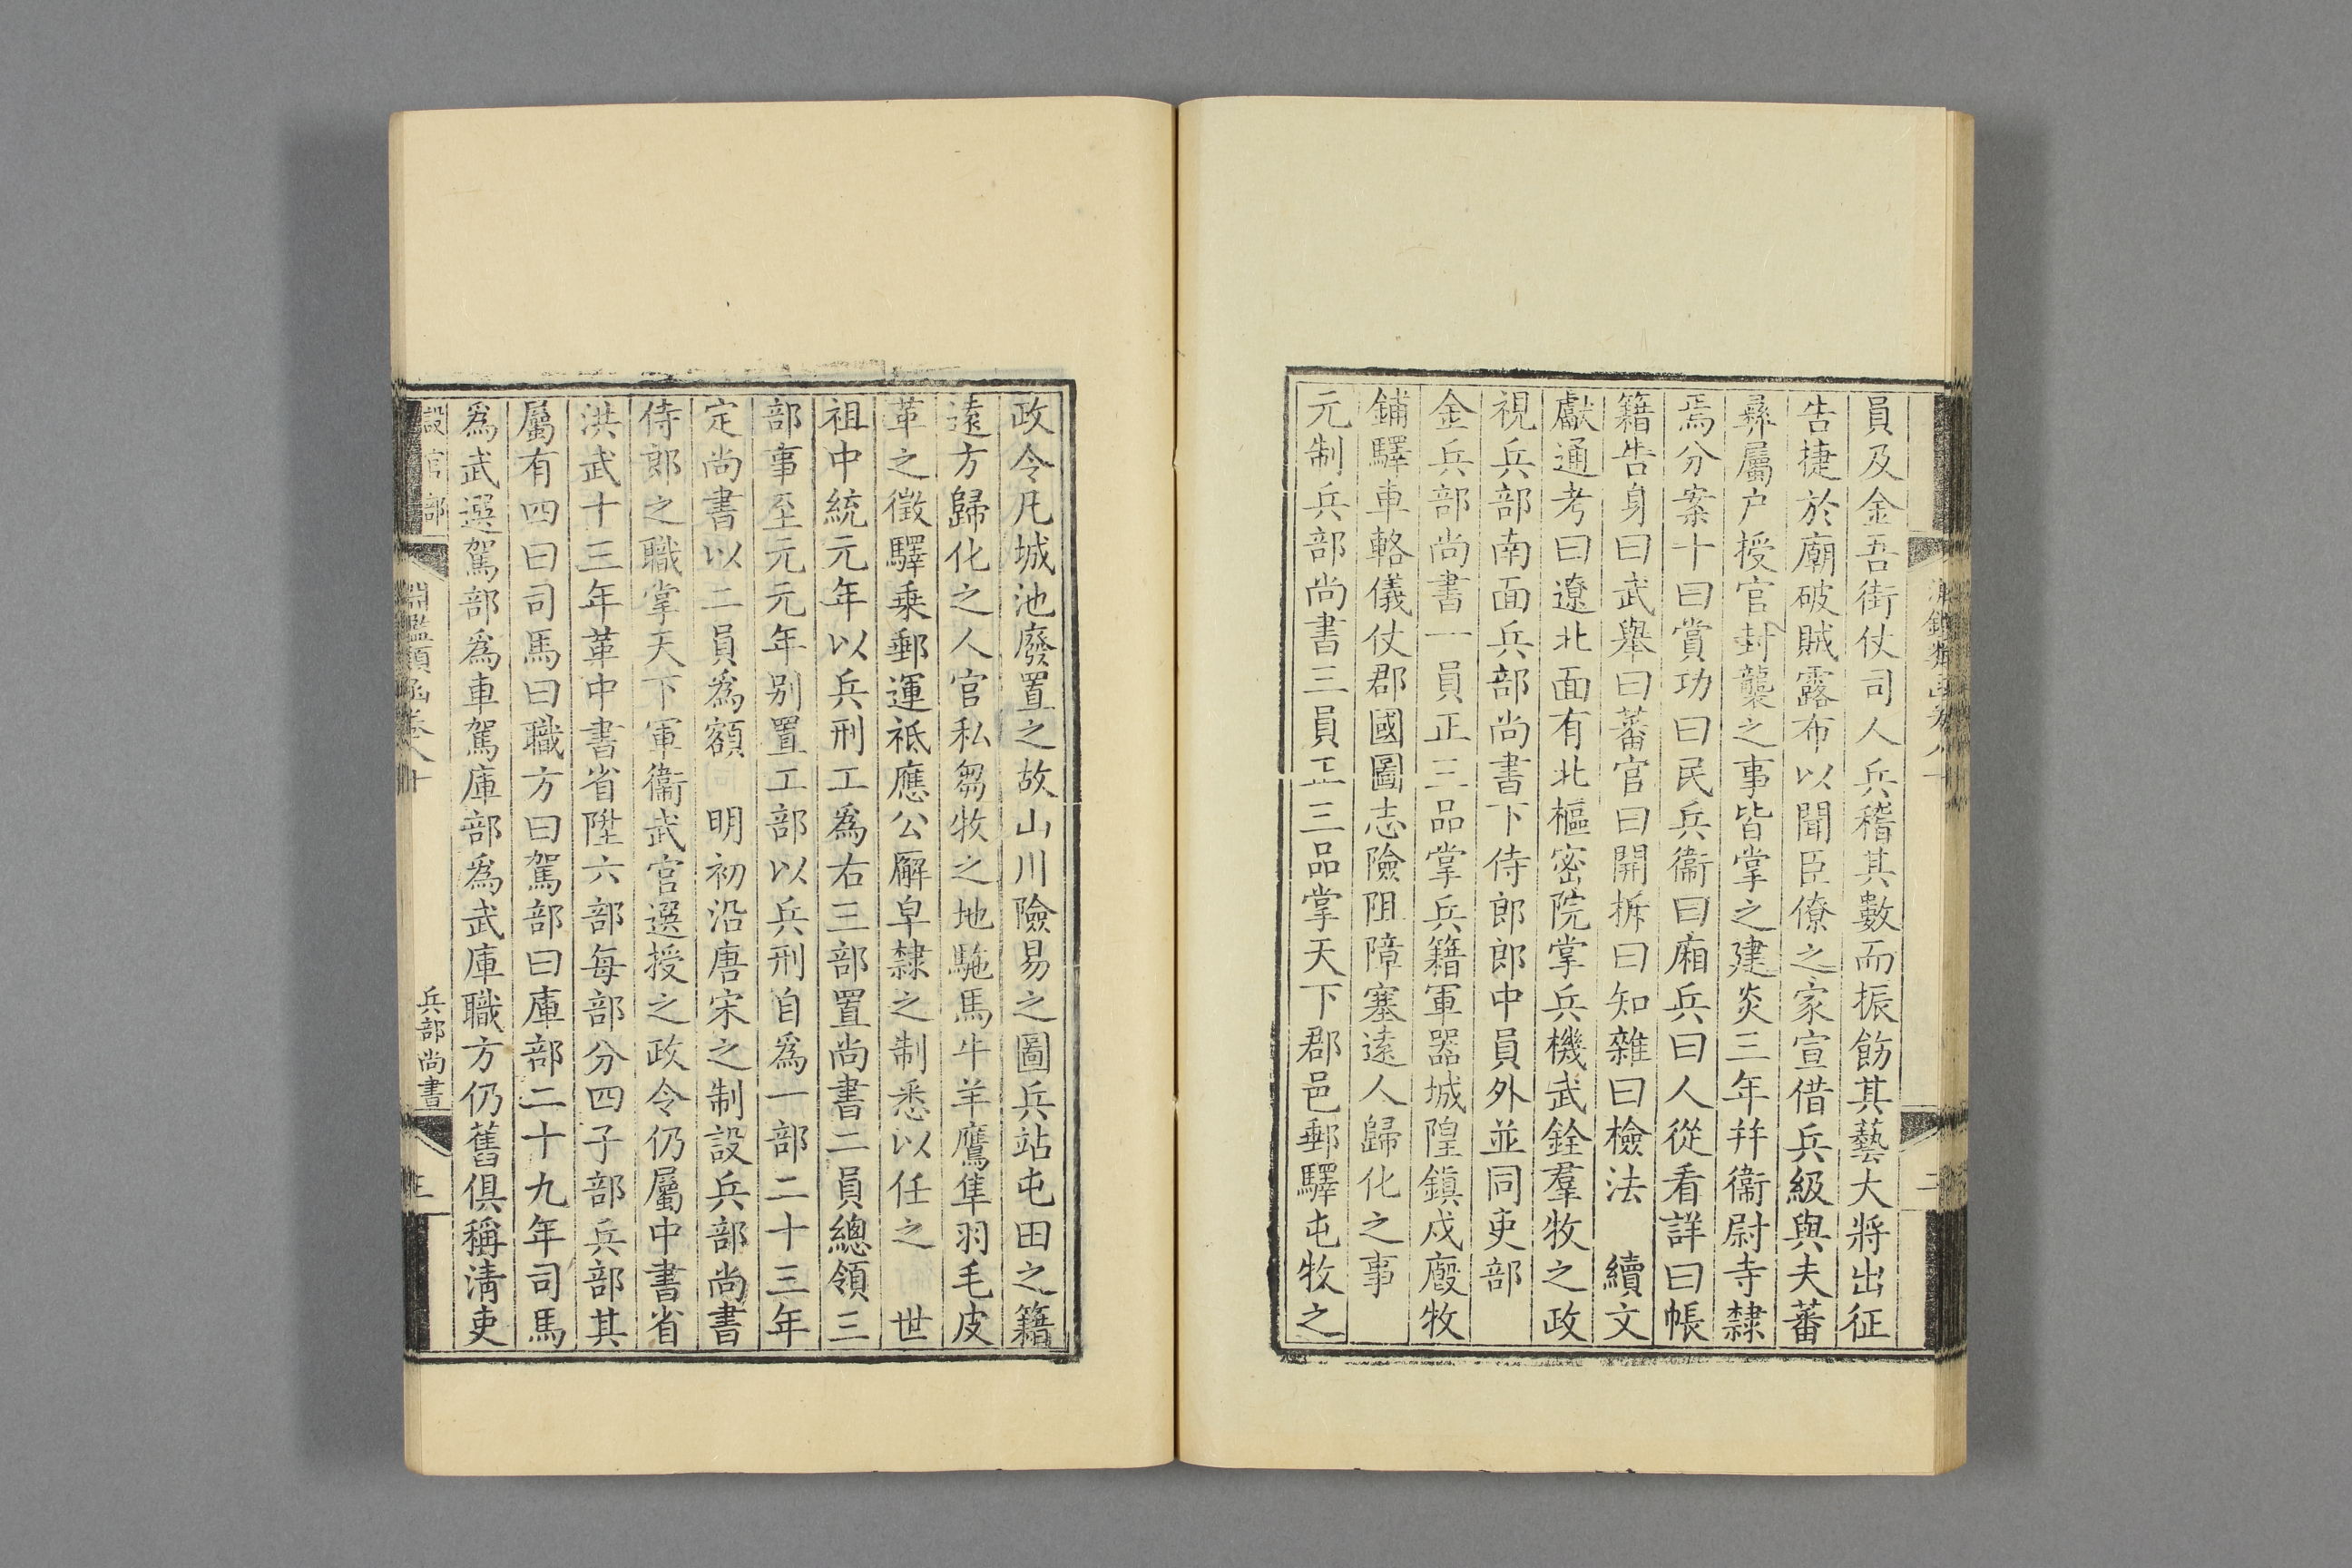 員及金吾街仗司人兵稽其數而振飭其藝大將出征
告捷於廟破賊露布以聞臣僚之家宣借兵級與夫蕃
彞屬户授官封襲之事皆掌之建炎三年并衞尉寺隸
焉分案十曰賞功曰民兵衞曰廂兵曰人從看詳曰帳
籍告身曰武舉曰蕃官曰開拆曰知雜曰檢法　續文
獻通考曰遼北面有北樞密院掌兵機武銓羣牧之政
視兵部南面兵部尚書下侍郎郎中員外並同吏部
金兵部尚書一員正三品掌兵籍軍器城隍鎭戍廏牧
鋪驛車輅儀仗郡國圖志險阻障塞遠人歸化之事
元制兵部尚書三員正三品掌天下郡邑郵驛屯牧之
政令凡城池廢置之故山川險易之圖兵站屯田之籍
遠方歸化之人官私芻牧之地駞馬牛羊鷹隼羽毛皮
革之徵驛乗郵運祗應公廨皁隸之制悉以任之　世
祖中統元年以兵刑工爲右三部置尚書二員總領三
部事至元元年别置工部以兵刑自爲一部二十三年
定尚書以二員爲額　明初沿唐宋之制設兵部尚書
侍郎之職掌天下軍衞武官選授之政令仍屬中書省
洪武十三年革中書省陞六部每部分四子部兵部其
屬有四曰司馬曰職方曰駕部曰庫部二十九年司馬
爲武選駕部爲車駕庫部爲武庫職方仍舊俱稱淸吏
設官部
淵鑑類函卷八十
兵部尚書
三